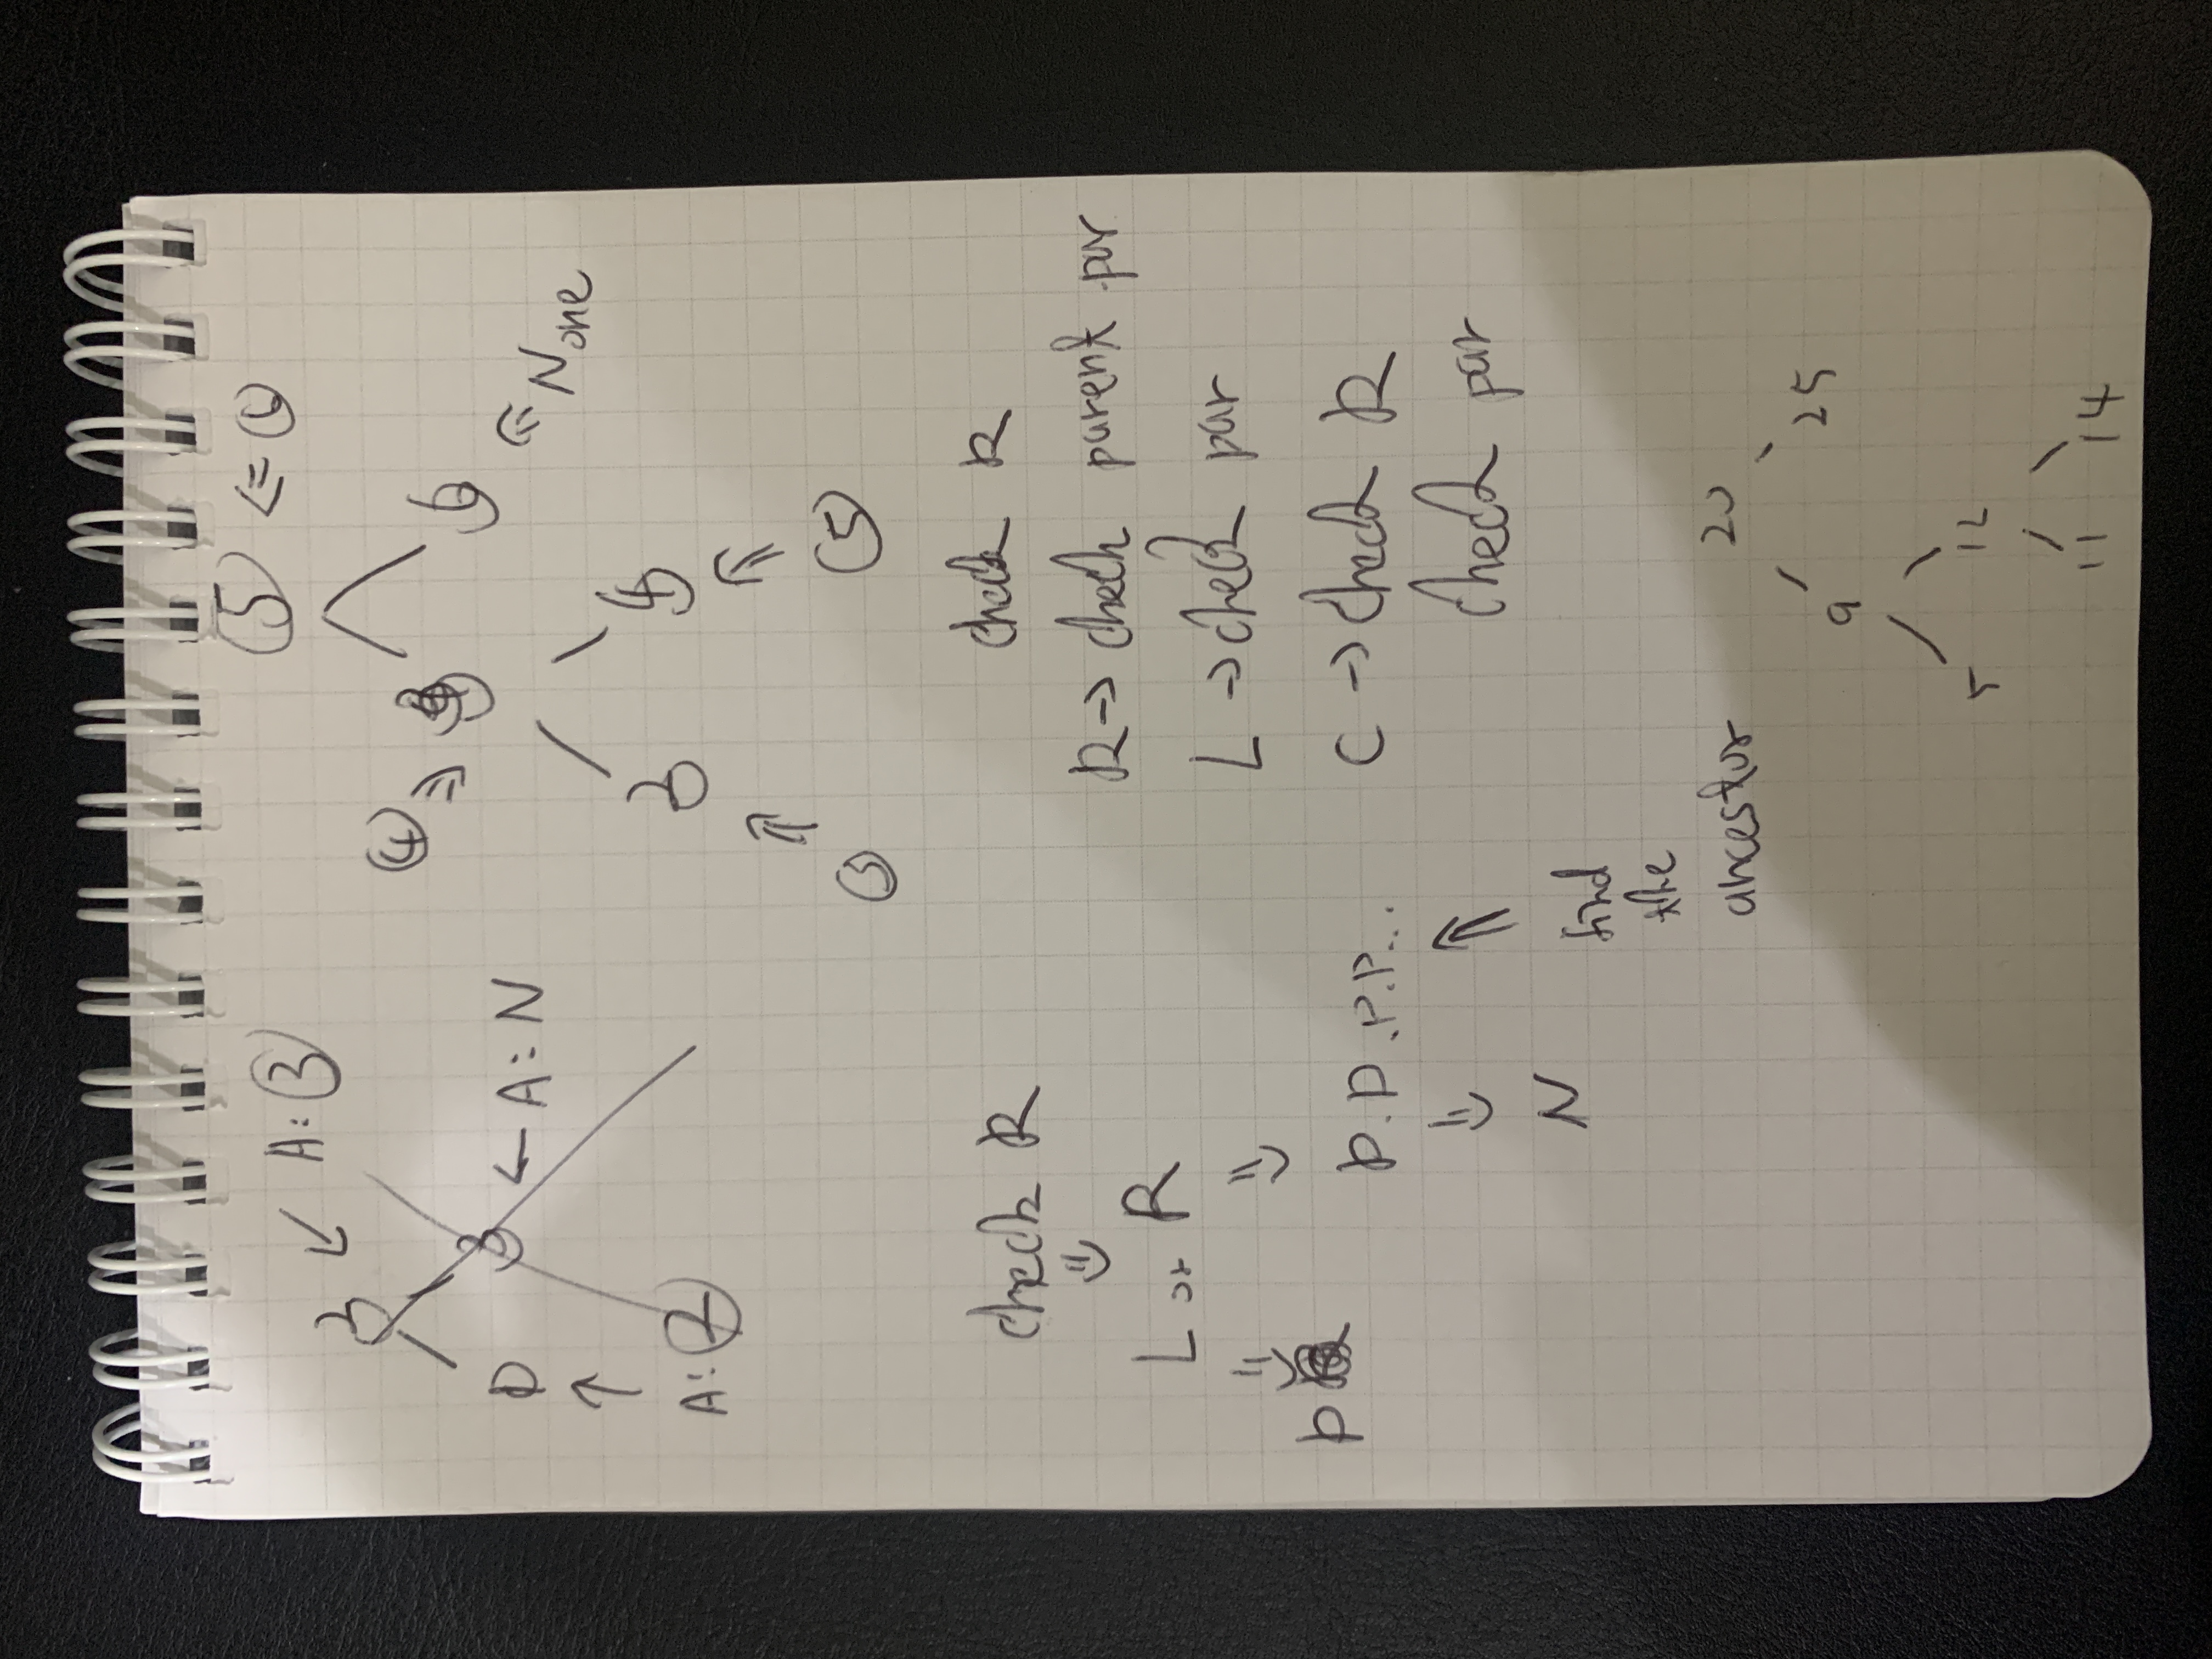 A: 3
2
0
3
← A: N
↑
A: 2
5 <= 6
4 => 3
6
None
2
4
3
5
check R
L or R
P
P.P.P.P...
N
find
the
ancestor
check R
R → check parent par
L → check par
C → check R
check par
20
9
25
5
12
11
14